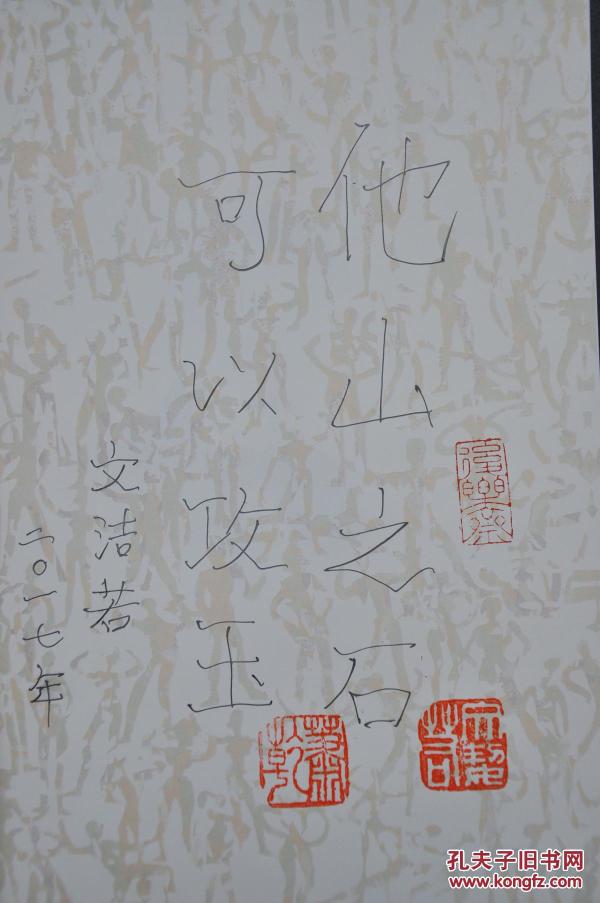 他山之石
可以攻玉
文洁若
二〇一七年
萧乾
孔夫子旧书网
www.kongfz.com